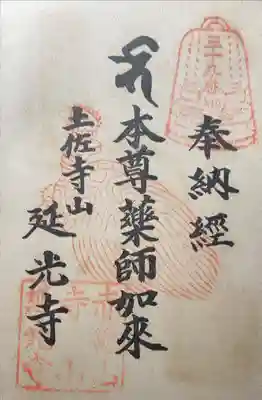 三十九
奉納經
本尊藥師如來
土佐寺山
延光寺